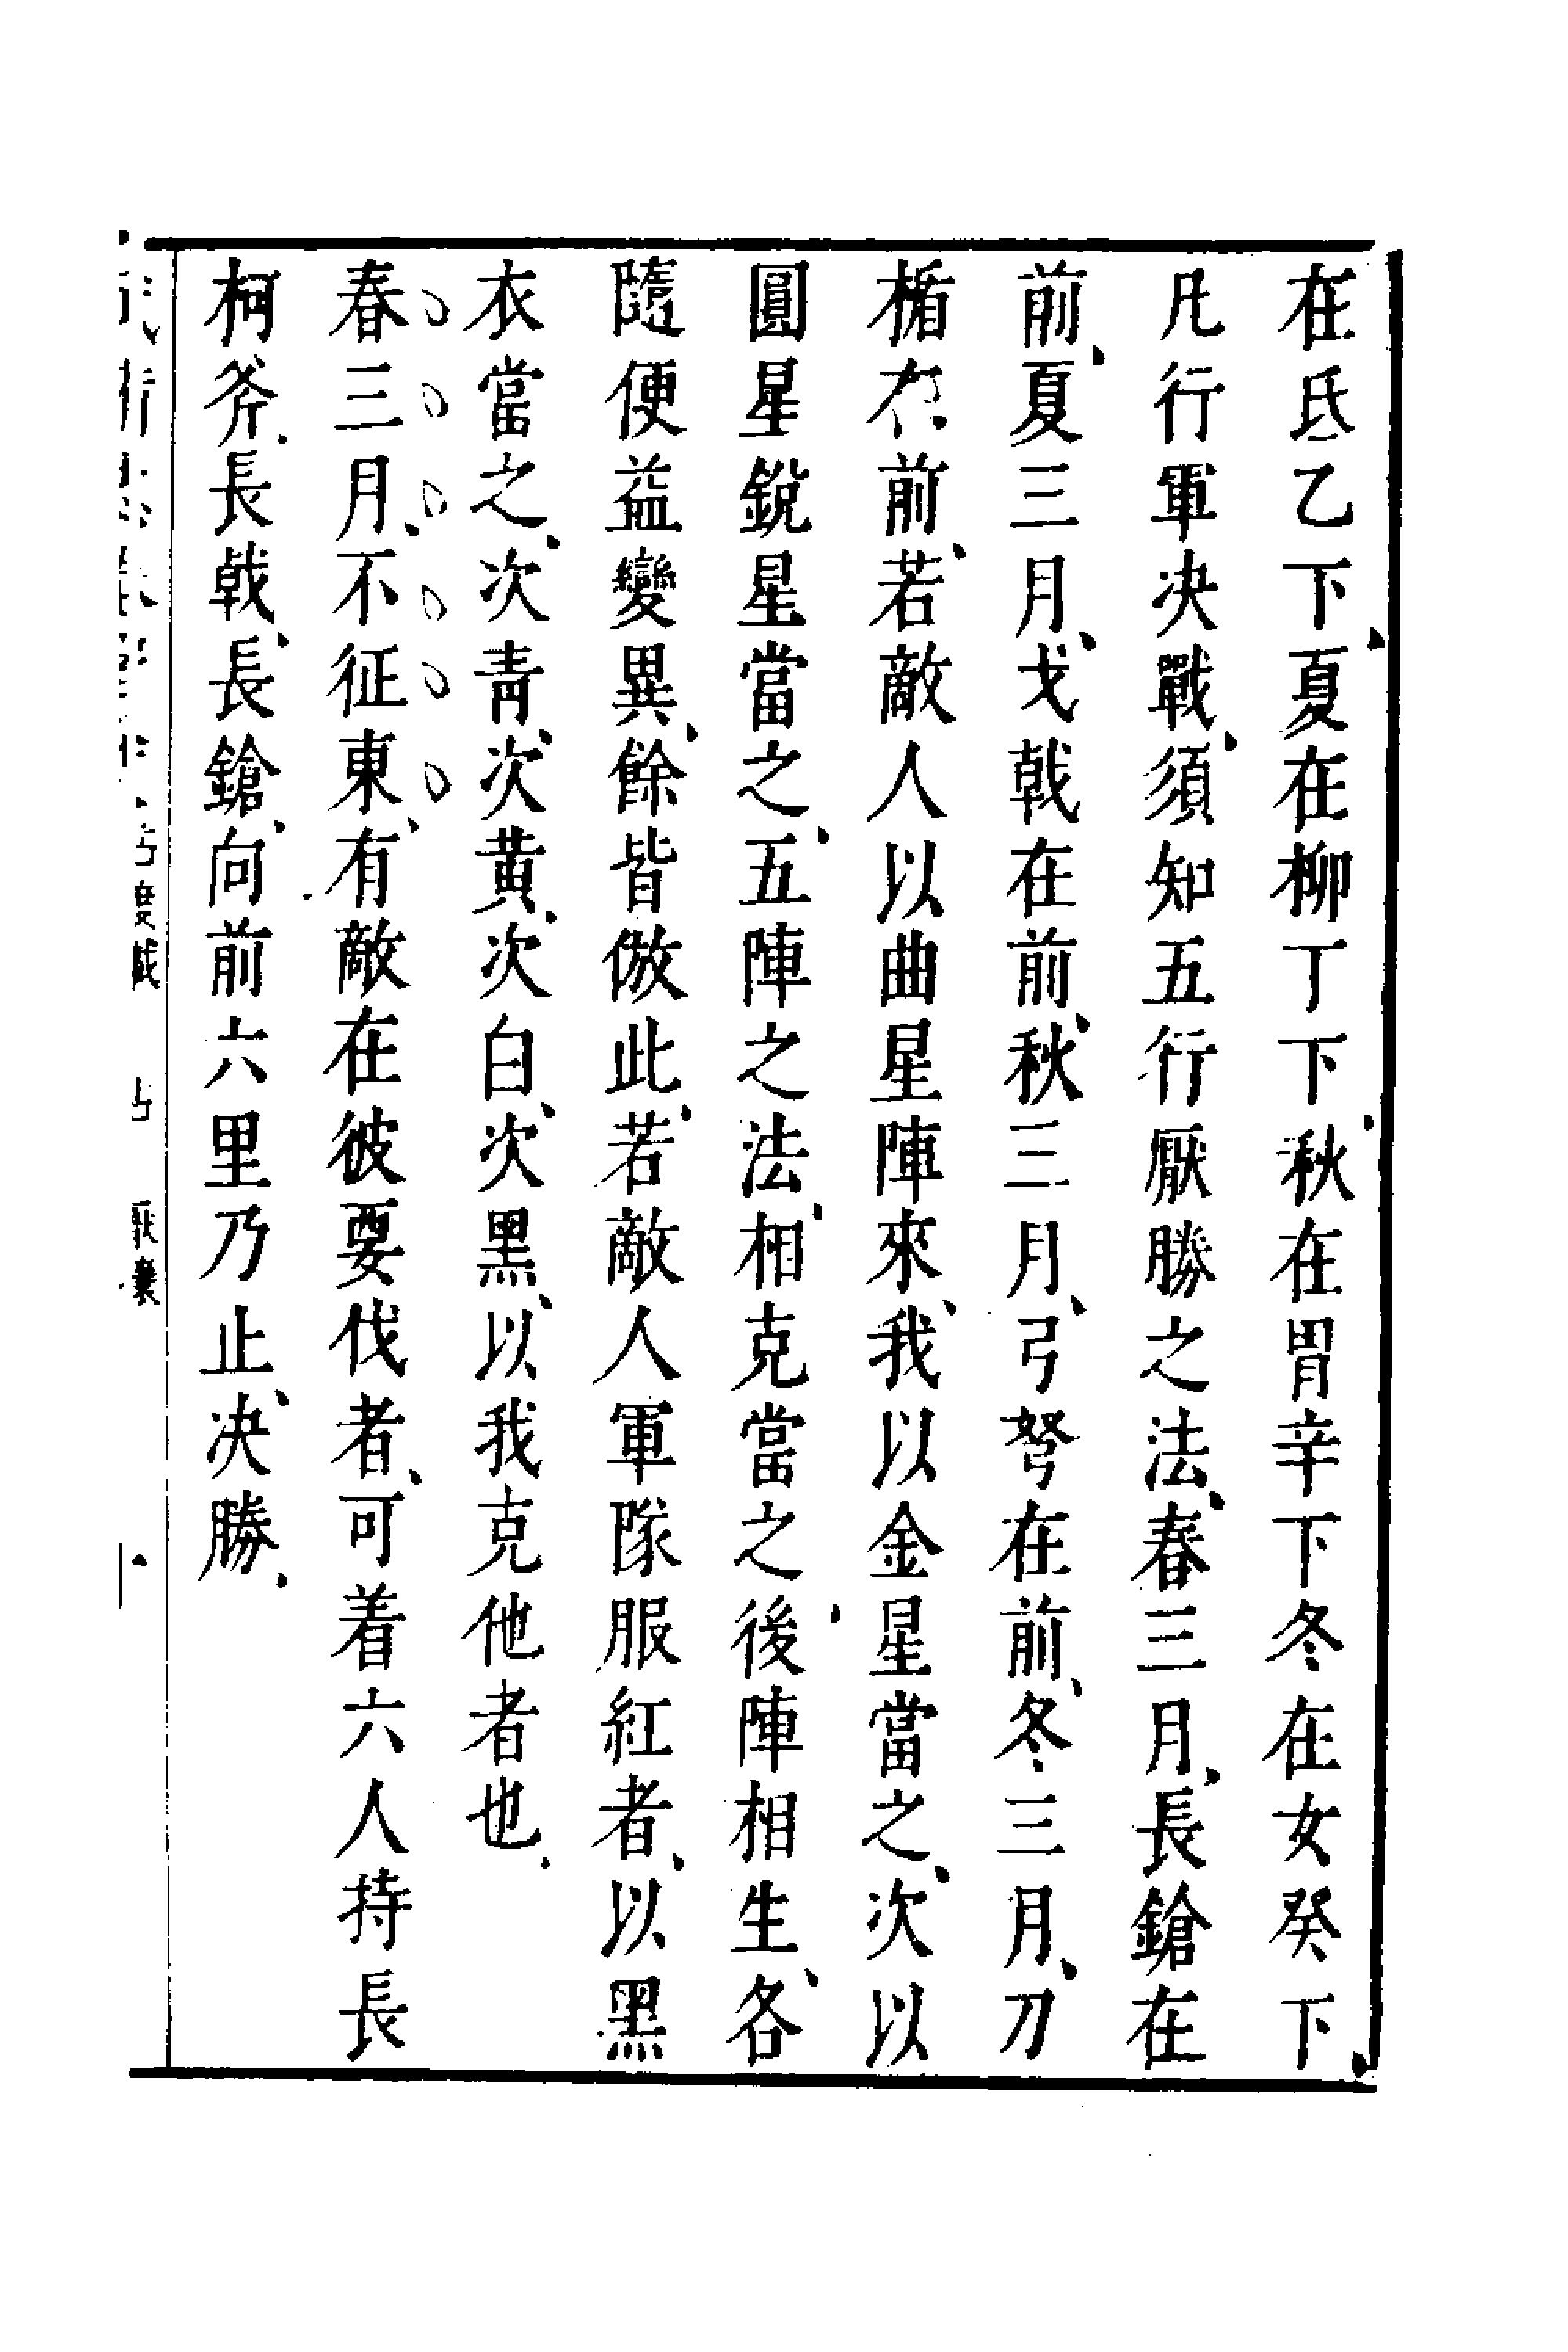 在氐乙下、夏在柳丁下、秋在胃辛下冬在女癸下、
凡行軍决戰、須知五行厭勝之法、春三月、長鎗在
前、夏三月、戈戟在前、秋三月、弓弩在前、冬三月、刀
楯在前、若敵人以曲星陣來、我以金星當之、次以
圓星銳星當之、五陣之法、相克當之後、陣相生、各
隨便益變異、餘皆倣此、若敵人軍隊服紅者、以黑
衣當之、次青、次黄、次白、次黑、以我克他者也、
春三月、不征東、有敵在彼要伐者、可着六人持長
柯斧、長戟、長鎗、向前六里乃止、决勝、
占度載 占 厭禳